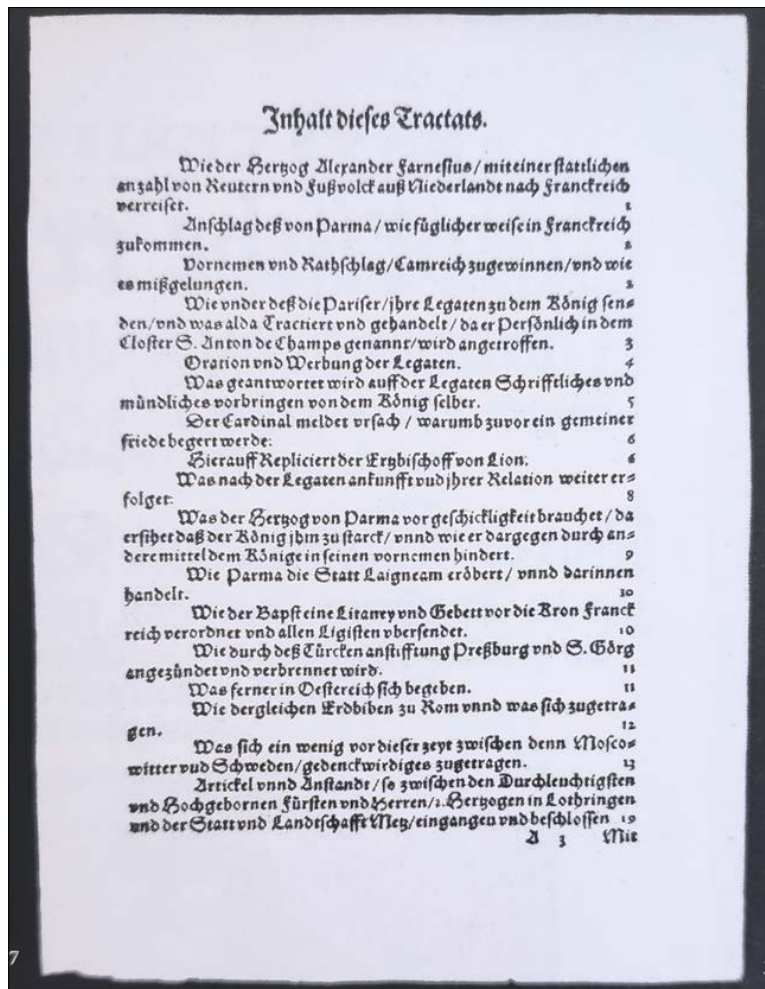 Inhalt dieses Tractats.
Wie der Hertzog Alexander Farnesius / mit einer stattlichen
anzahl von Reutern vnd Fußvolck auß Niederlandt nach Franckreich
verreiset. 1
Anschlag deß von Parma / wie füglicher weise in Franckreich
zukommen. 2
Vornemen vnd Rathschlag / Camreich zugewinnen / vnd wie
es mißgelungen. 2
Wie vnder deß die Pariser / jhre Legaten zu dem König sen⸗
den / vnd was alda Tractiert vnd gehandelt / da er Persönlich in dem
Closter S. Anton de Champs genannt / wird angetroffen. 3
Oration vnd Werbung der Legaten. 4
Was geantwortet wird auff der Legaten Schrifftliches vnd
mündliches vorbringen von dem König selber. 5
Der Cardinal meldet vrsach / warumb zuvor ein gemeiner
friede begert werde: 6
Hierauff Repliciert der Ertzbischoff von Lion. 6
Was nach der Legaten ankunfft vnd jhrer Relation weiter er⸗
folget. 8
Was der Hertzog von Parma vor geschickligkeit brauchet / da
ersihet daß der König jhm zu starck / vnnd wie er dargegen durch an⸗
dere mittel dem Könige in seinen vornemen hindert. 9
Wie Parma die Statt Laigneam eröbert / vnnd darinnen
handelt. 10
Wie der Bapst eine Litaney vnd Gebett vor die Kron Franck
reich verordnet vnd allen Ligisten vbersendet. 10
Wie durch deß Türcken anstifftung Preßburg vnd S. Görg
angezündet vnd verbrennet wird. 11
Was ferner in Oestereich sich begeben. 11
Wie dergleichen Erdbiben zu Rom vnnd was sich zugetra⸗
gen. 12
Was sich ein wenig vor dieser zeyt zwischen denn Mosco⸗
witter vnd Schweden / gedenckwirdiges zugetragen. 13
Artickel vnnd Anstandt / so zwischen den Durchleuchtigsten
vnd Hochgebornen Fürsten vnd Herren / 2. Hertzogen in Lothringen
vnd der Statt vnd Landtschafft Metz / eingangen vnd beschlossen 19
A 3 Mit
7